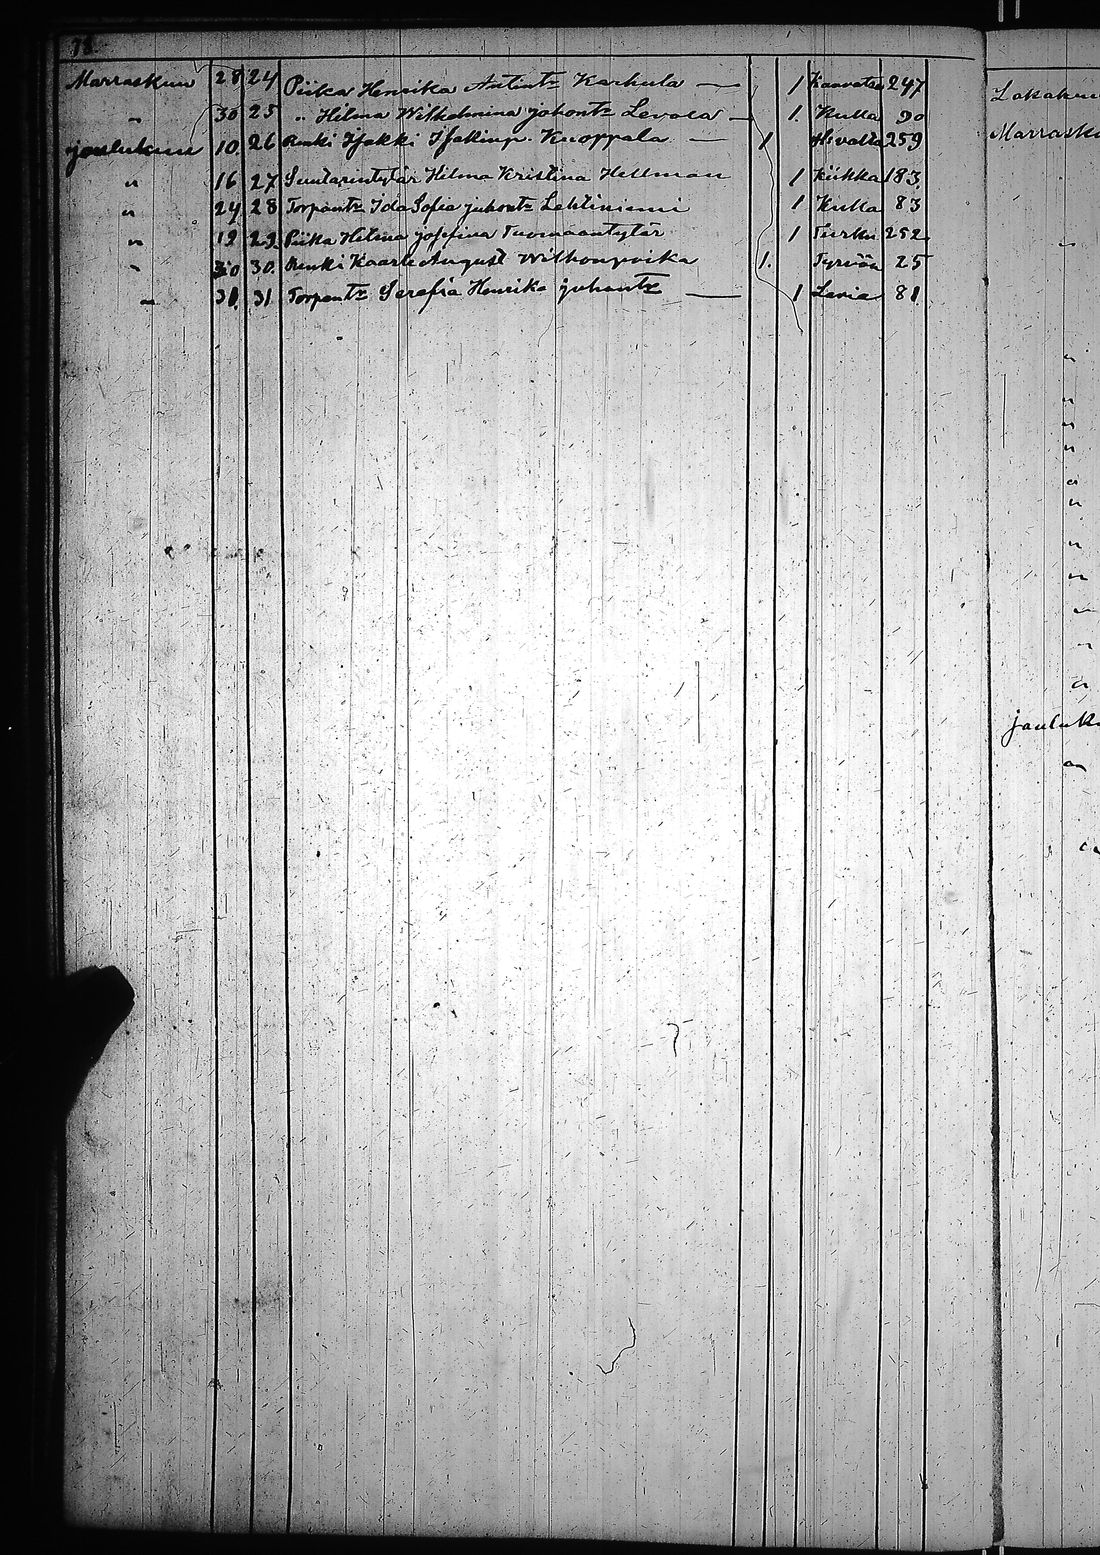 78
Marraskuu 28 24 Piika Henrika Antintr Karhula — 1 247
" 30 25 " Hilma Wilhelmina juhontr Levola — 1 Kulla 90
joulukuu 10 26 Renki Isakki Isakinp. Kuoppala — 1 259
" 16 27 Suutarintytär Hilma Kristina Hellman 1 Kiikka 183
" 24 28 Torpantr Ida Sofia juhontr Lehtiniemi 1 Kulla 83
" 19 29 Piika Hilma josefina Tuomaantytär 1 Turku 252
" 30 30 Renki Kaarle August 1 Tyrvää 25
" 31 31 Torpantr Serafia Henrika juhontr — 1 Lavia 81
Lokakuu
Marrasku
"
"
"
"
"
"
"
"
"
"
"
"
jouluku
"